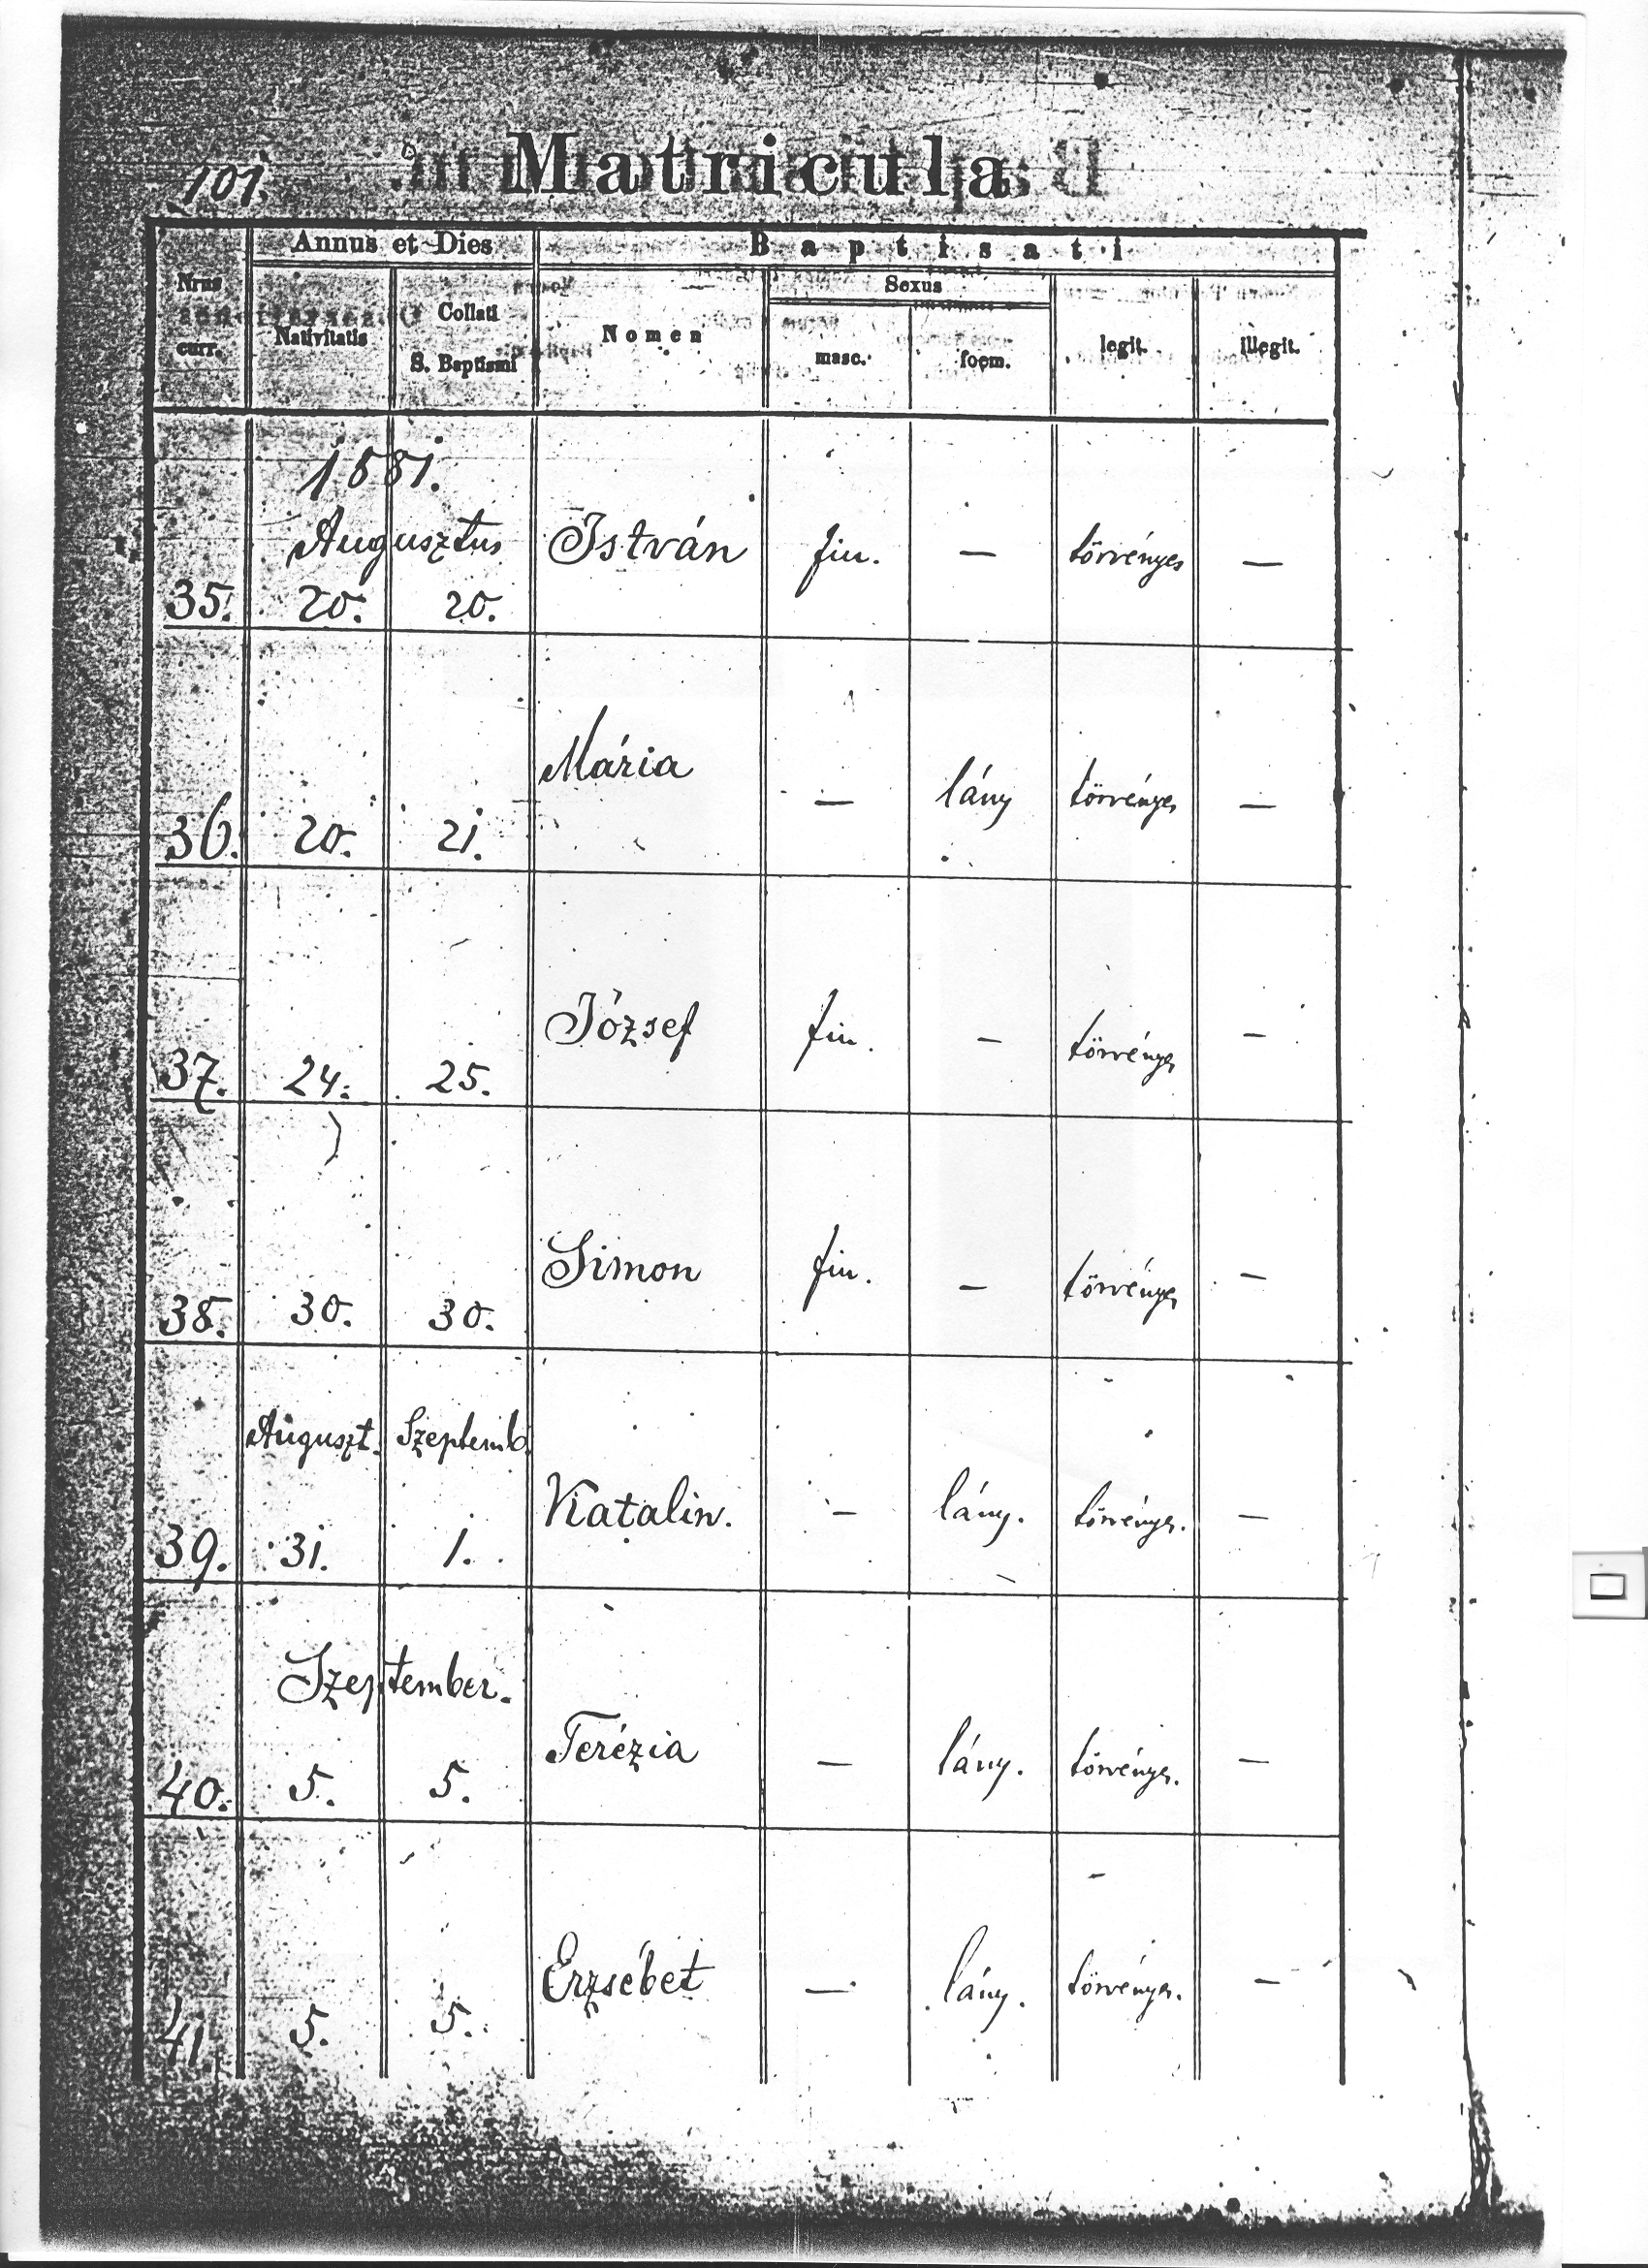 101.
Matricula
Annus et Dies
Baptisati
Nrus curr.
Nativitatis
Collati S. Baptismi
Nomen
Sexus
masc.
foem.
legit.
illegit.
1881.
Augusztus
35. 20. 20. István fiu. — törvényes —
36. 20. 21. Mária — lány törvényes —
37. 24. 25. József fiu. — törvényes —
38. 30. 30. Simon fiu. — törvényes —
Auguszt. Szeptemb.
39. 31. 1. Katalin. — lány. törvényes. —
Szeptember.
40. 5. 5. Terézia — lány. törvényes. —
41. 5. 5. Erzsébet — lány. törvényes. —